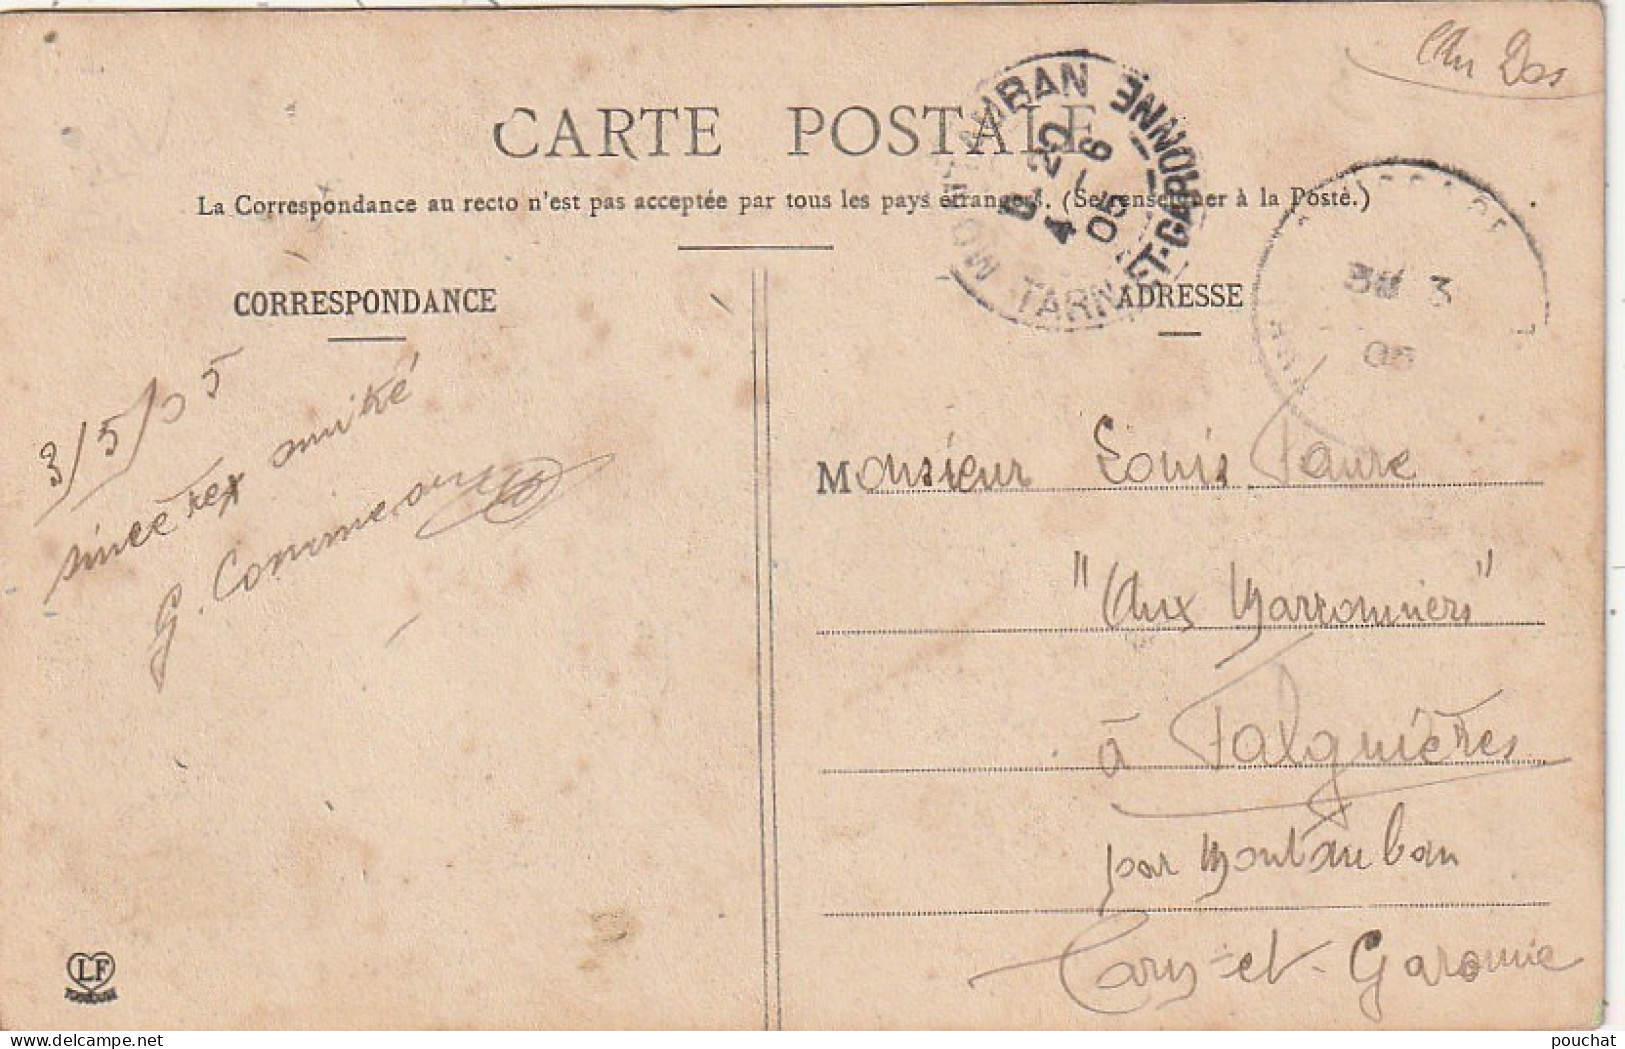 Au Dos
CARTE POSTALE
La Correspondance au recto n'est pas acceptée par tous les pays étrangers. (Se renseigner à la Poste.)
MONTAUBAN
TARN-ET-GARONNE
4 - 6
05
3
05
CORRESPONDANCE
ADRESSE
3/5/05
sincères
amitié
G. Commeau
Monsieur Louis Faure
"Aux Marronniers"
à Falguières
par Montauban
Tarn-et-Garonne
LF
TOULOUSE
pouchat